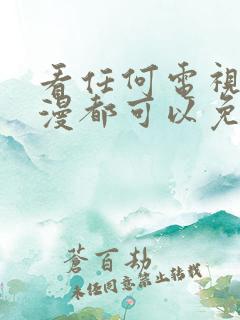 看任何電視
漫都可以免
蒼百劫
未任同意禁止转载